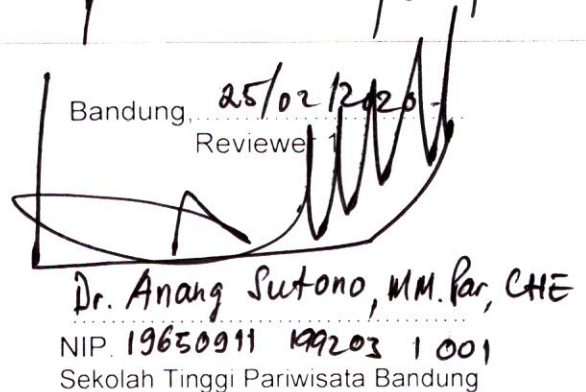 Bandung, 25/02/2020
Reviewer 1
Dr. Anang Sutono, MM.Par, CHE
NIP. 19650911 199203 1 001
Sekolah Tinggi Pariwisata Bandung